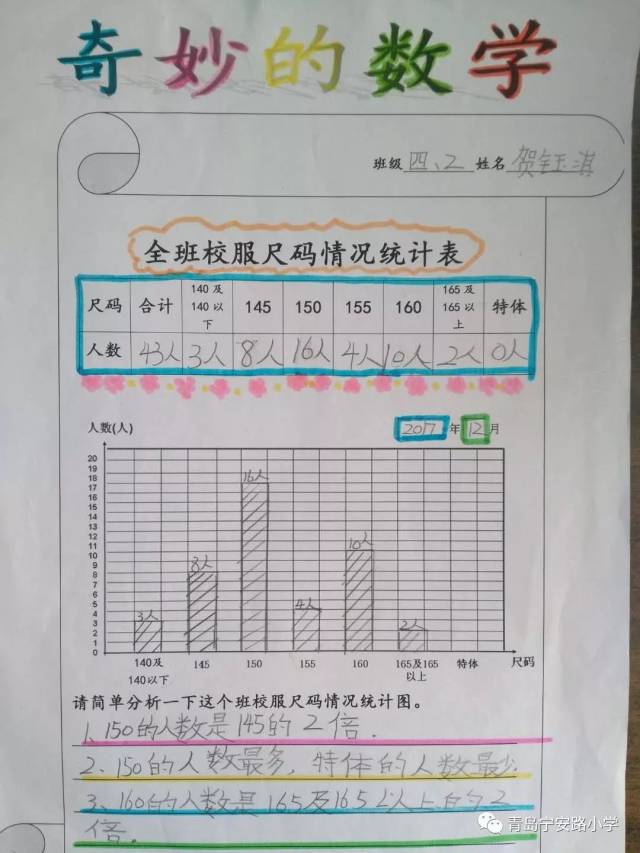 奇妙的数学
班级 四、2 姓名 贺钰淇
全班校服尺码情况统计表
尺码 合计 140及140以下 145 150 155 160 165及165以上 特体
人数 43人 3人 8人 16人 4人 10人 2人 0人
人数(人) 2017年12月
20
19
18
17
16
15
14
13
12
11
10
9
8
7
6
5
4
3
2
1
0
3人 8人 16人 4人 10人 2人
140及140以下 145 150 155 160 165及165以上 特体 尺码
请简单分析一下这个班校服尺码情况统计图。
1、150的人数是145的2倍.
2、150的人数最多，特体的人数最少.
3、160的人数是165及165以上的2
倍.
青岛宁安路小学